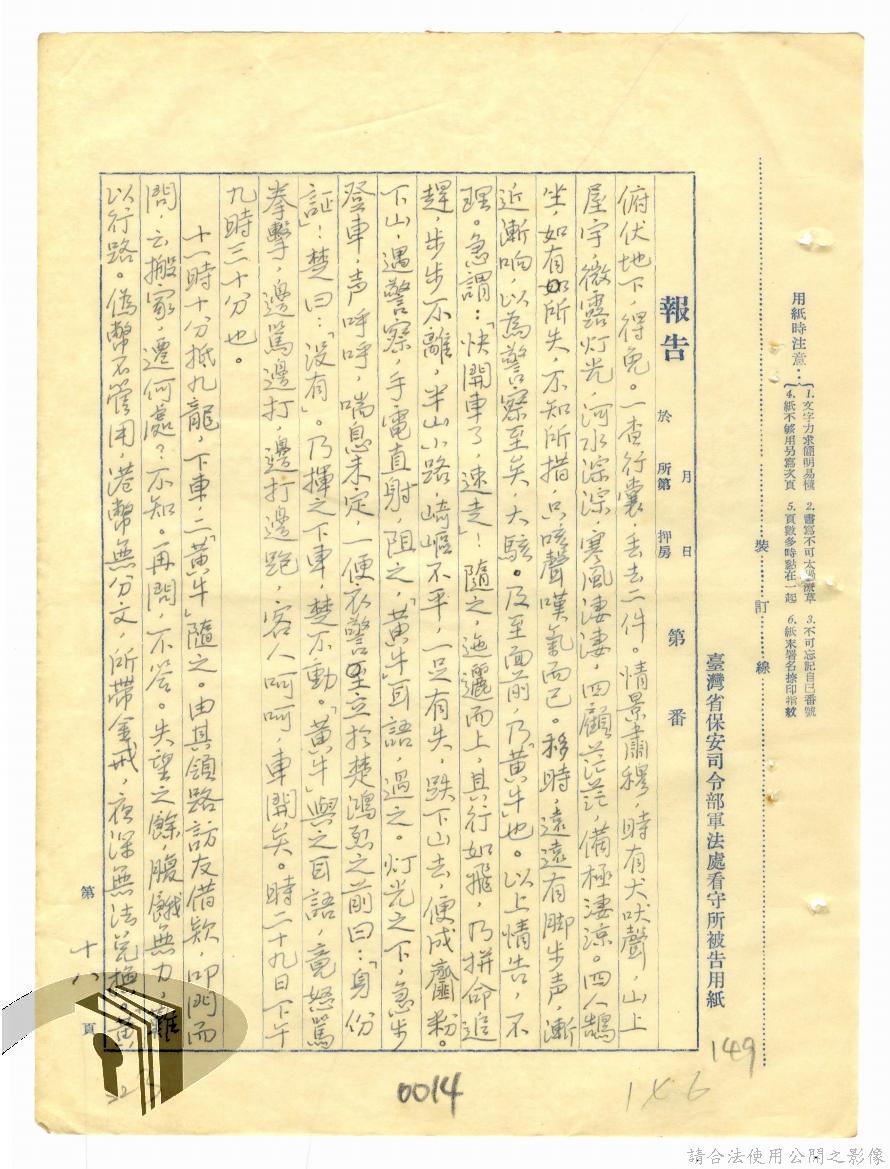 臺灣省保安司令部軍法處看守所被告用紙
用紙時注意：
1.文字力求簡明易懂　2.書寫不可太過潦草　3.不可忘記自己番號
4.紙不够用另寫次頁　5.頁數多時黏在一起　6.紙末署名捺印指紋
裝訂線
報告　於　月　日　所第　押房　第　番
俯伏地下，得免。一查行囊，丢去二件。情景肅穆，時有犬吠聲，山上
屋宇，微露灯光，河水淙淙，寒風淒淒，四顧茫茫，備極淒涼。四人鵠
坐，如有所失，不知所措，只咳聲嘆氣而已。移時，遠遠有脚步声，漸
近漸响，以為警察至矣，大駭。及至面前，乃「黄牛」也。以上情告，不
理。急謂：「快開車了，速走」！隨之，迤邐而上，其行如飛，乃拼命追
趕，步步不離，半山小路，崎嶇不平，一足有失，跌下山去，便成齏粉。
下山，遇警察，手電直射，阻之，「黄牛」耳語，過之。灯光之下，急步
登車，声呼呼，喘息未定，一便衣警立於楚鴻烈之前曰：「身份
証」！楚曰：「沒有」。乃揮之下車，楚不動。「黄牛」與之耳語，竟怒罵
拳擊，邊罵邊打，邊打邊跑，客人呵呵，車開矣。時二十九日下午
九時三十分也。
十一時十分抵九龍，下車，二「黄牛」隨之。由其領路訪友借欵，叩門而
問，云搬家，遷何處？不知。再問，不答。失望之餘，腹餓無力，難
以行路。偽幣不管用，港幣無分文，所帶金戒，夜深無法兌換。黄
第十八頁
149
0014
1×6
請合法使用公開之影像